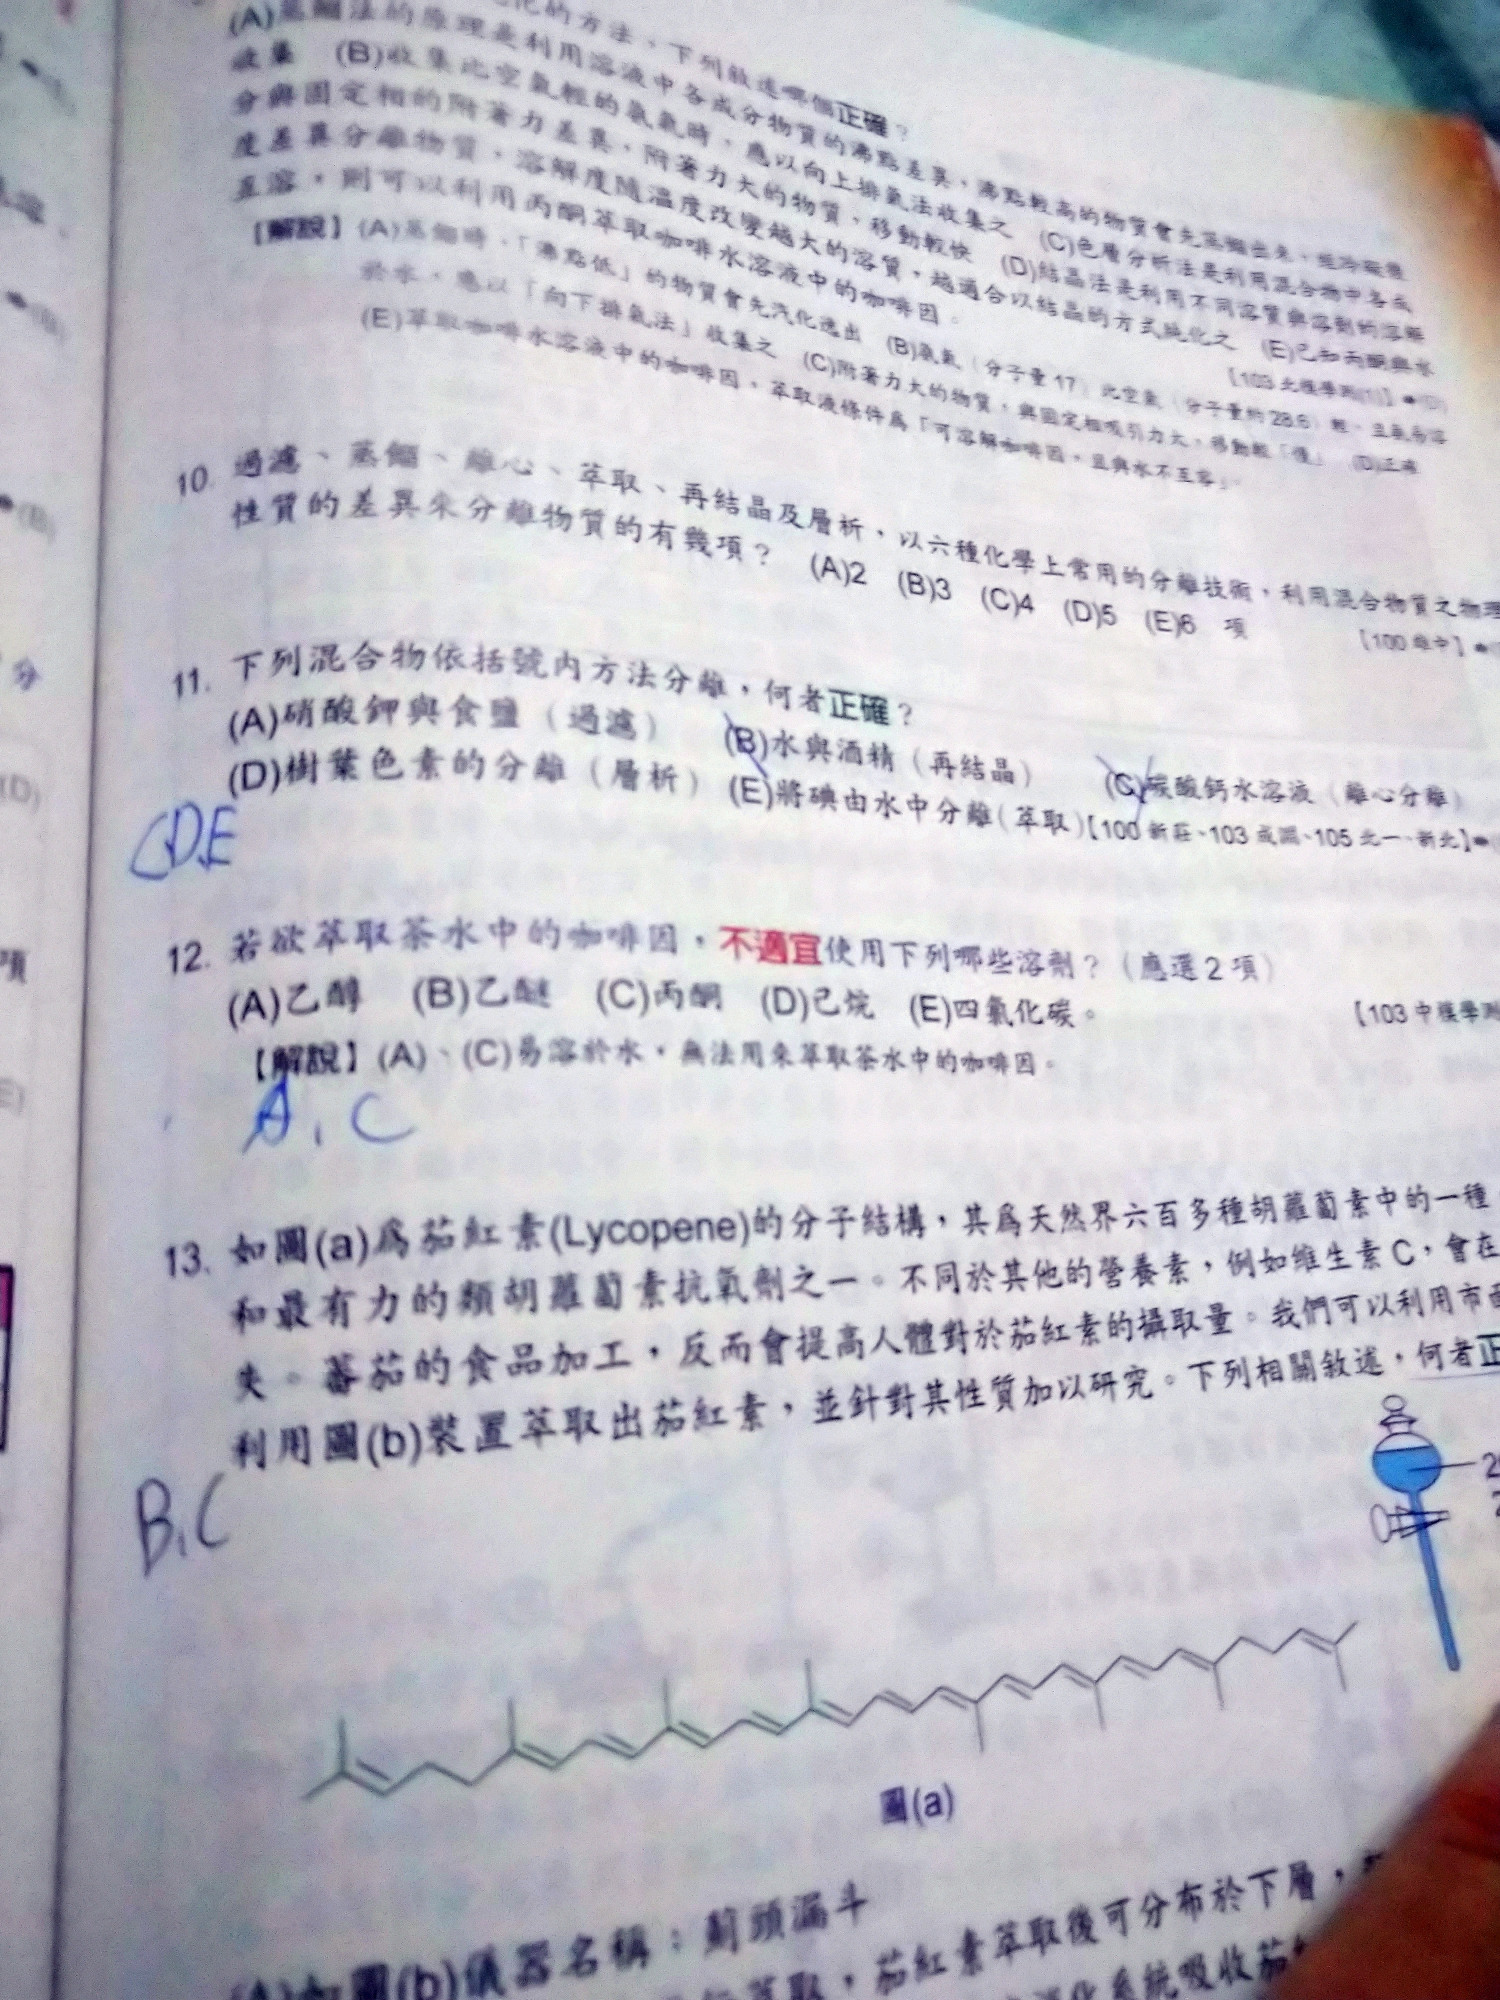 化的方法，下列敘述哪個正確？
(A)蒸餾法的原理是利用溶液中各成分物質的沸點差異，沸點較高的物質會先蒸餾出來，經冷凝後
收集 (B)收集比空氣輕的氨氣時，應以向上排氣法收集之 (C)色層分析法是利用混合物中各成
分與固定相的附著力差異，附著力大的物質，移動較快 (D)結晶法是利用不同溶質與溶劑的溶解
度差異分離物質，溶解度隨溫度改變越大的溶質，越適合以結晶的方式純化之 (E)已知丙酮與水
互溶，則可以利用丙酮萃取咖啡水溶液中的咖啡因。
【103 北模學測(1)】
【解說】(A)蒸餾時，「沸點低」的物質會先汽化逸出 (B)氨氣（分子量17）比空氣（分子量約28.8）輕，且氨易溶
於水，應以「向下排氣法」收集之 (C)附著力大的物質，與固定相吸引力大，移動較「慢」 (D)正確
(E)萃取咖啡水溶液中的咖啡因，萃取液條件為「可溶解咖啡因，且與水不互溶」。
10. 過濾、蒸餾、離心、萃取、再結晶及層析，以六種化學上常用的分離技術，利用混合物質之物理
性質的差異來分離物質的有幾項？ (A)2 (B)3 (C)4 (D)5 (E)6 項
【100 雄中】
11. 下列混合物依括號內方法分離，何者正確？
(A)硝酸鉀與食鹽（過濾） (B)水與酒精（再結晶） (C)碳酸鈣水溶液（離心分離）
(D)樹葉色素的分離（層析） (E)將碘由水中分離（萃取）【100 新莊、103 成淵、105 北一、新北】
C.D.E
12. 若欲萃取茶水中的咖啡因，不適宜使用下列哪些溶劑？（應選2項）
(A)乙醇 (B)乙醚 (C)丙酮 (D)己烷 (E)四氯化碳。
【103 中模學測
【解說】(A)、(C)易溶於水，無法用來萃取茶水中的咖啡因。
A, C
13. 如圖(a)為茄紅素(Lycopene)的分子結構，其為天然界六百多種胡蘿蔔素中的一種
和最有力的類胡蘿蔔素抗氧劑之一。不同於其他的營養素，例如維生素C，會在
失。蕃茄的食品加工，反而會提高人體對於茄紅素的攝取量。我們可以利用市面
利用圖(b)裝置萃取出茄紅素，並針對其性質加以研究。下列相關敘述，何者正
B, C
圖(a)
(A)如圖(b)儀器名稱：薊頭漏斗
萃取，茄紅素萃取後可分布於下層，
消化系統吸收茄